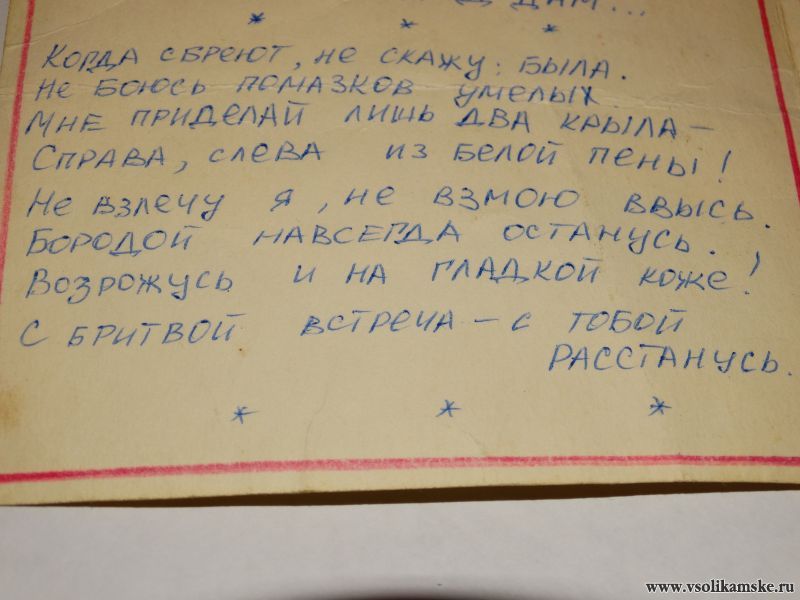 ДАМ...
* * *
Когда сбреют, не скажу: была.
Не боюсь помазков умелых.
Мне приделай лишь два крыла –
Справа, слева из белой пены!
Не взлечу я, не взмою ввысь.
Бородой навсегда останусь.
Возрожусь и на гладкой коже!
С бритвой встреча – с тобой
расстанусь.
* * *
www.vsolikamske.ru